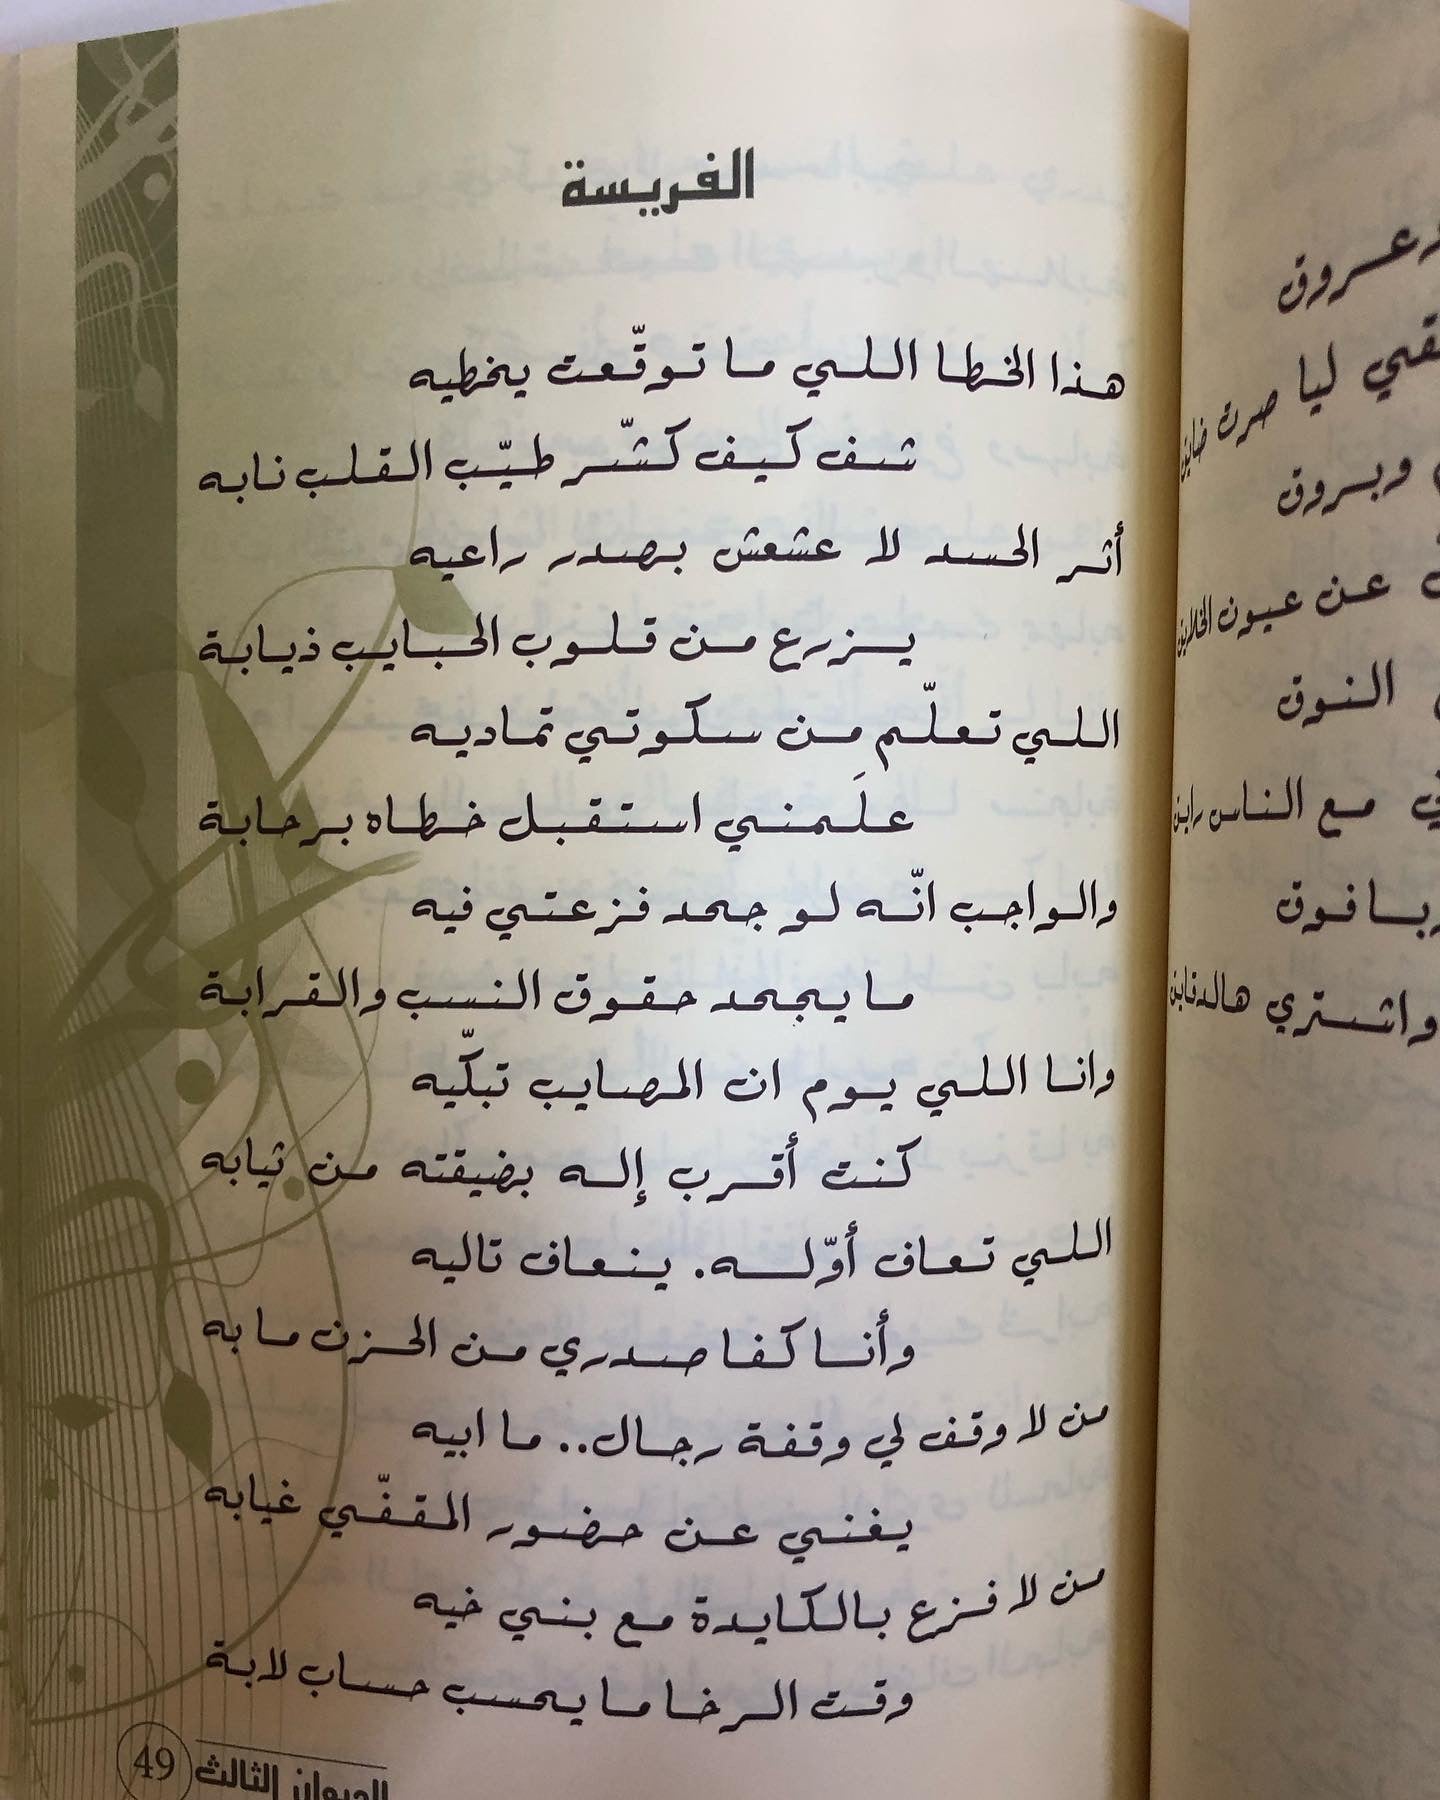 الفريسة
هذا الخطا اللي ما توقّعت يخطيه
شف كيف كشّر طيّب القلب نابه
أثر الحسد لا عشعش بصدر راعيه
يزرع من قلوب الحبايب ذيابة
اللي تعلّم من سكوتي تماديه
علَمني استقبل خطاه برحابة
والواجب انّه لو جحد فزعتي فيه
ما يجحد حقوق النسب والقرابة
وانا اللي يوم ان المصايب تبكّيه
كنت أقرب إله بضيقته من ثيابه
اللي تعاف أوّله. ينعاف تاليه
وأنا كفا صدري من الحزن ما به
من لا وقف لي وقفة رجال.. ما ابيه
يغني عن حضور المقفّي غيابه
من لا فزع بالكايدة مع بني خيه
وقت الرخا ما يحسب حساب لابة
الديوان الثالث 49
عروق
ليا صرت ضايق
وبروق
عن عيون الخلايق
النوق
مع الناس رايق
فوق
واشتري هالدقايق